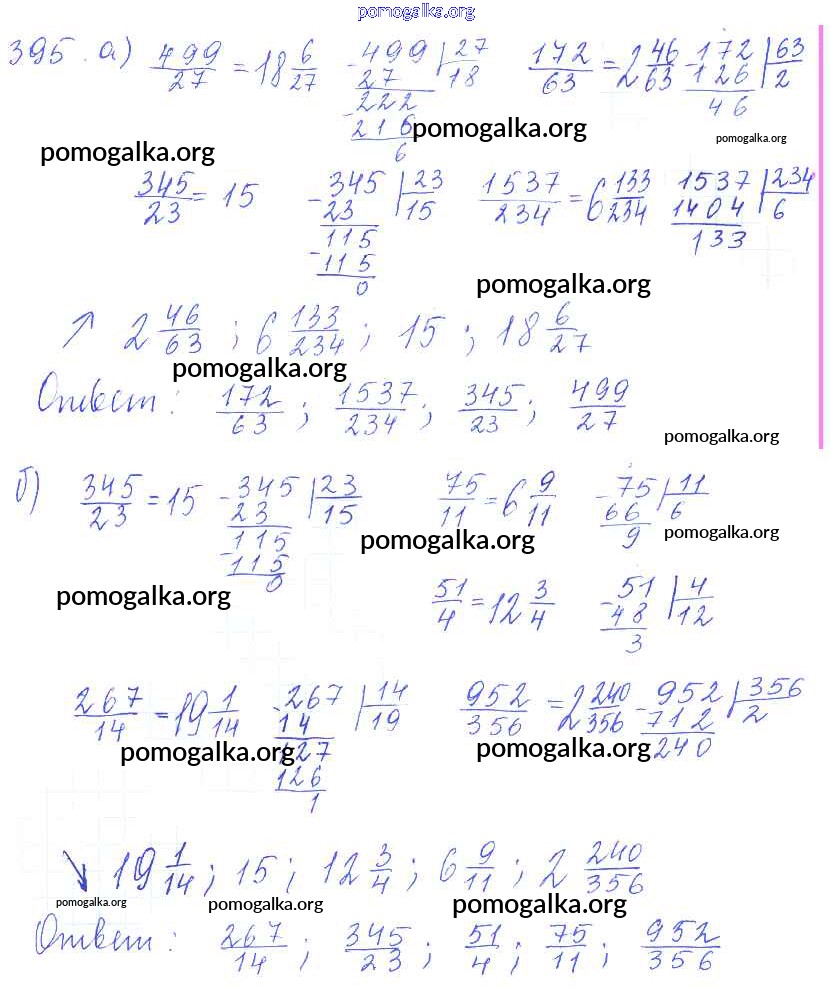 pomogalka.org
395. а) 499/27 = 18 6/27 -499 | 27 172/63 = 2 46/63 -172 | 63
27 18 126 2
-222 46
216
6
pomogalka.org pomogalka.org pomogalka.org
345/23 = 15 -345 | 23 1537/234 = 6 133/234 1537 | 234
23 15 1404 6
-115 133
115
0
pomogalka.org
↗ 2 46/63 ; 6 133/234 ; 15 ; 18 6/27
pomogalka.org
Ответ: 172/63 ; 1537/234 ; 345/23 ; 499/27
pomogalka.org
б) 345/23 = 15 -345 | 23 75/11 = 6 9/11 -75 | 11
23 15 66 6
-115 9
115
0
pomogalka.org pomogalka.org pomogalka.org
51/4 = 12 3/4 -51 | 4
48 12
3
267/14 = 19 1/14 -267 | 14 952/356 = 2 240/356 -952 | 356
14 19 712 2
127 240
126
1
pomogalka.org pomogalka.org
↘ 19 1/14 ; 15 ; 12 3/4 ; 6 9/11 ; 2 240/356
pomogalka.org pomogalka.org pomogalka.org
Ответ: 267/14 ; 345/23 ; 51/4 ; 75/11 ; 952/356